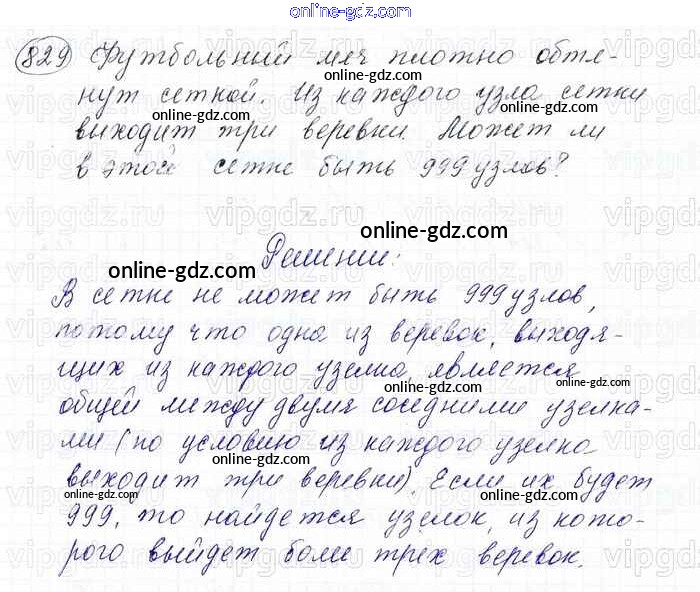 online-gdz.com
829 Футбольный мяч плотно обтя-
online-gdz.com
нут сеткой. Из каждого узла сетки
online-gdz.com
выходит три веревки. Может ли
online-gdz.com
в этой сетке быть 999 узлов?
online-gdz.com
Решение:
online-gdz.com
В сетке не может быть 999 узлов,
online-gdz.com
потому что одна из веревок, выходя-
щих из каждого узелка, является
online-gdz.com
общей между двумя соседними узелка-
ми (по условию из каждого узелка
выходит три веревки). Если их будет
online-gdz.com
online-gdz.com
999, то найдется узелок, из кото-
рого выйдет боли трех веревок.
online-gdz.com